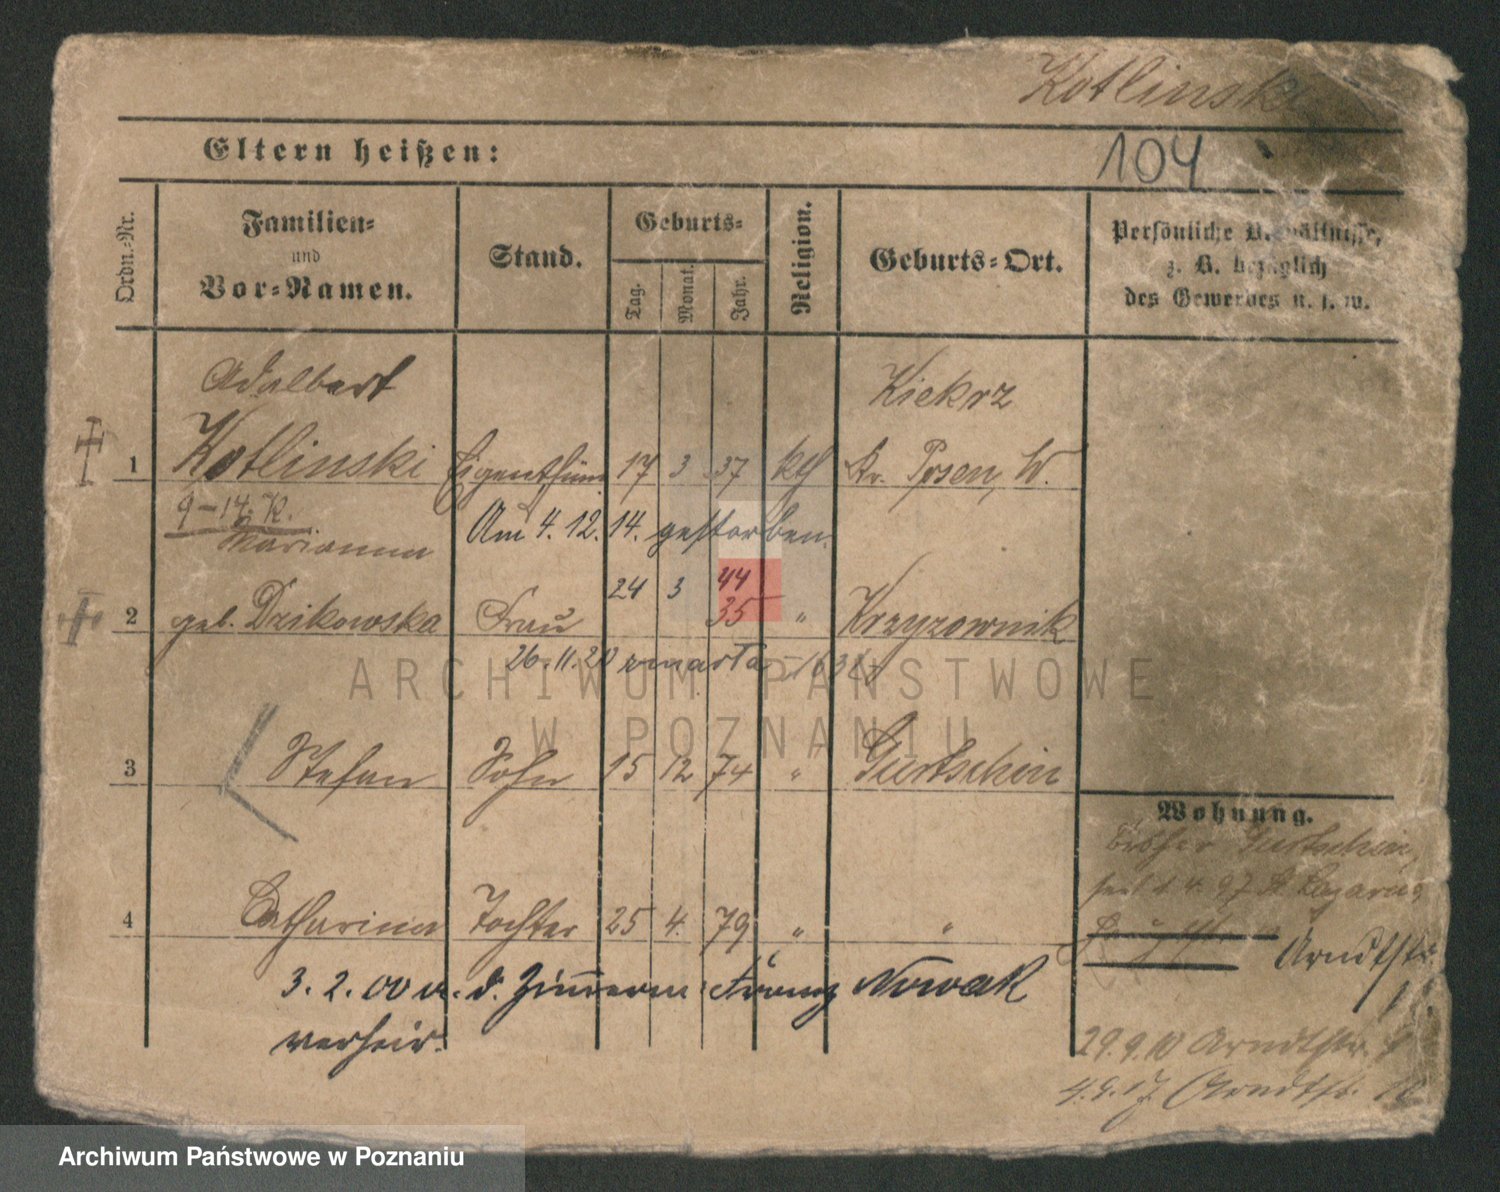 Kotlinski
104
Eltern heißen:
Ordn.-Nr.
Familien-
und
Vor-Namen.
Stand.
Geburts-
Tag.
Monat.
Jahr.
Religion.
Geburts-Ort.
Persönliche Verhältnisse,
z. B. bezüglich
des Gewerbes u. s. w.
Adalbert Kiekrz
1 Kotlinski Eigenthüm. 17 3 37 kth Kr. Posen, W.
9-14. K. Am 4.12.14. gestorben.
Marianna
24 3 44
2 geb. Dzikowska Frau 35 " Krzyzownik
26.11.20 zmarła
3 Stefan Sohn 15 12 74 " Gurtschin
Wohnung.
bisher Gurtschin,
seit 1.4.97 St Lazarus,
Arndtstr.
4 Catharina Tochter 25 4. 79 " "
3.2.00 m. d. Zimmerm. Franz Nowak
verheir.
29.9.10 Arndtstr.
4.9.17 Arndtstr.
ARCHIWUM PAŃSTWOWE
W POZNANIU
Archiwum Państwowe w Poznaniu